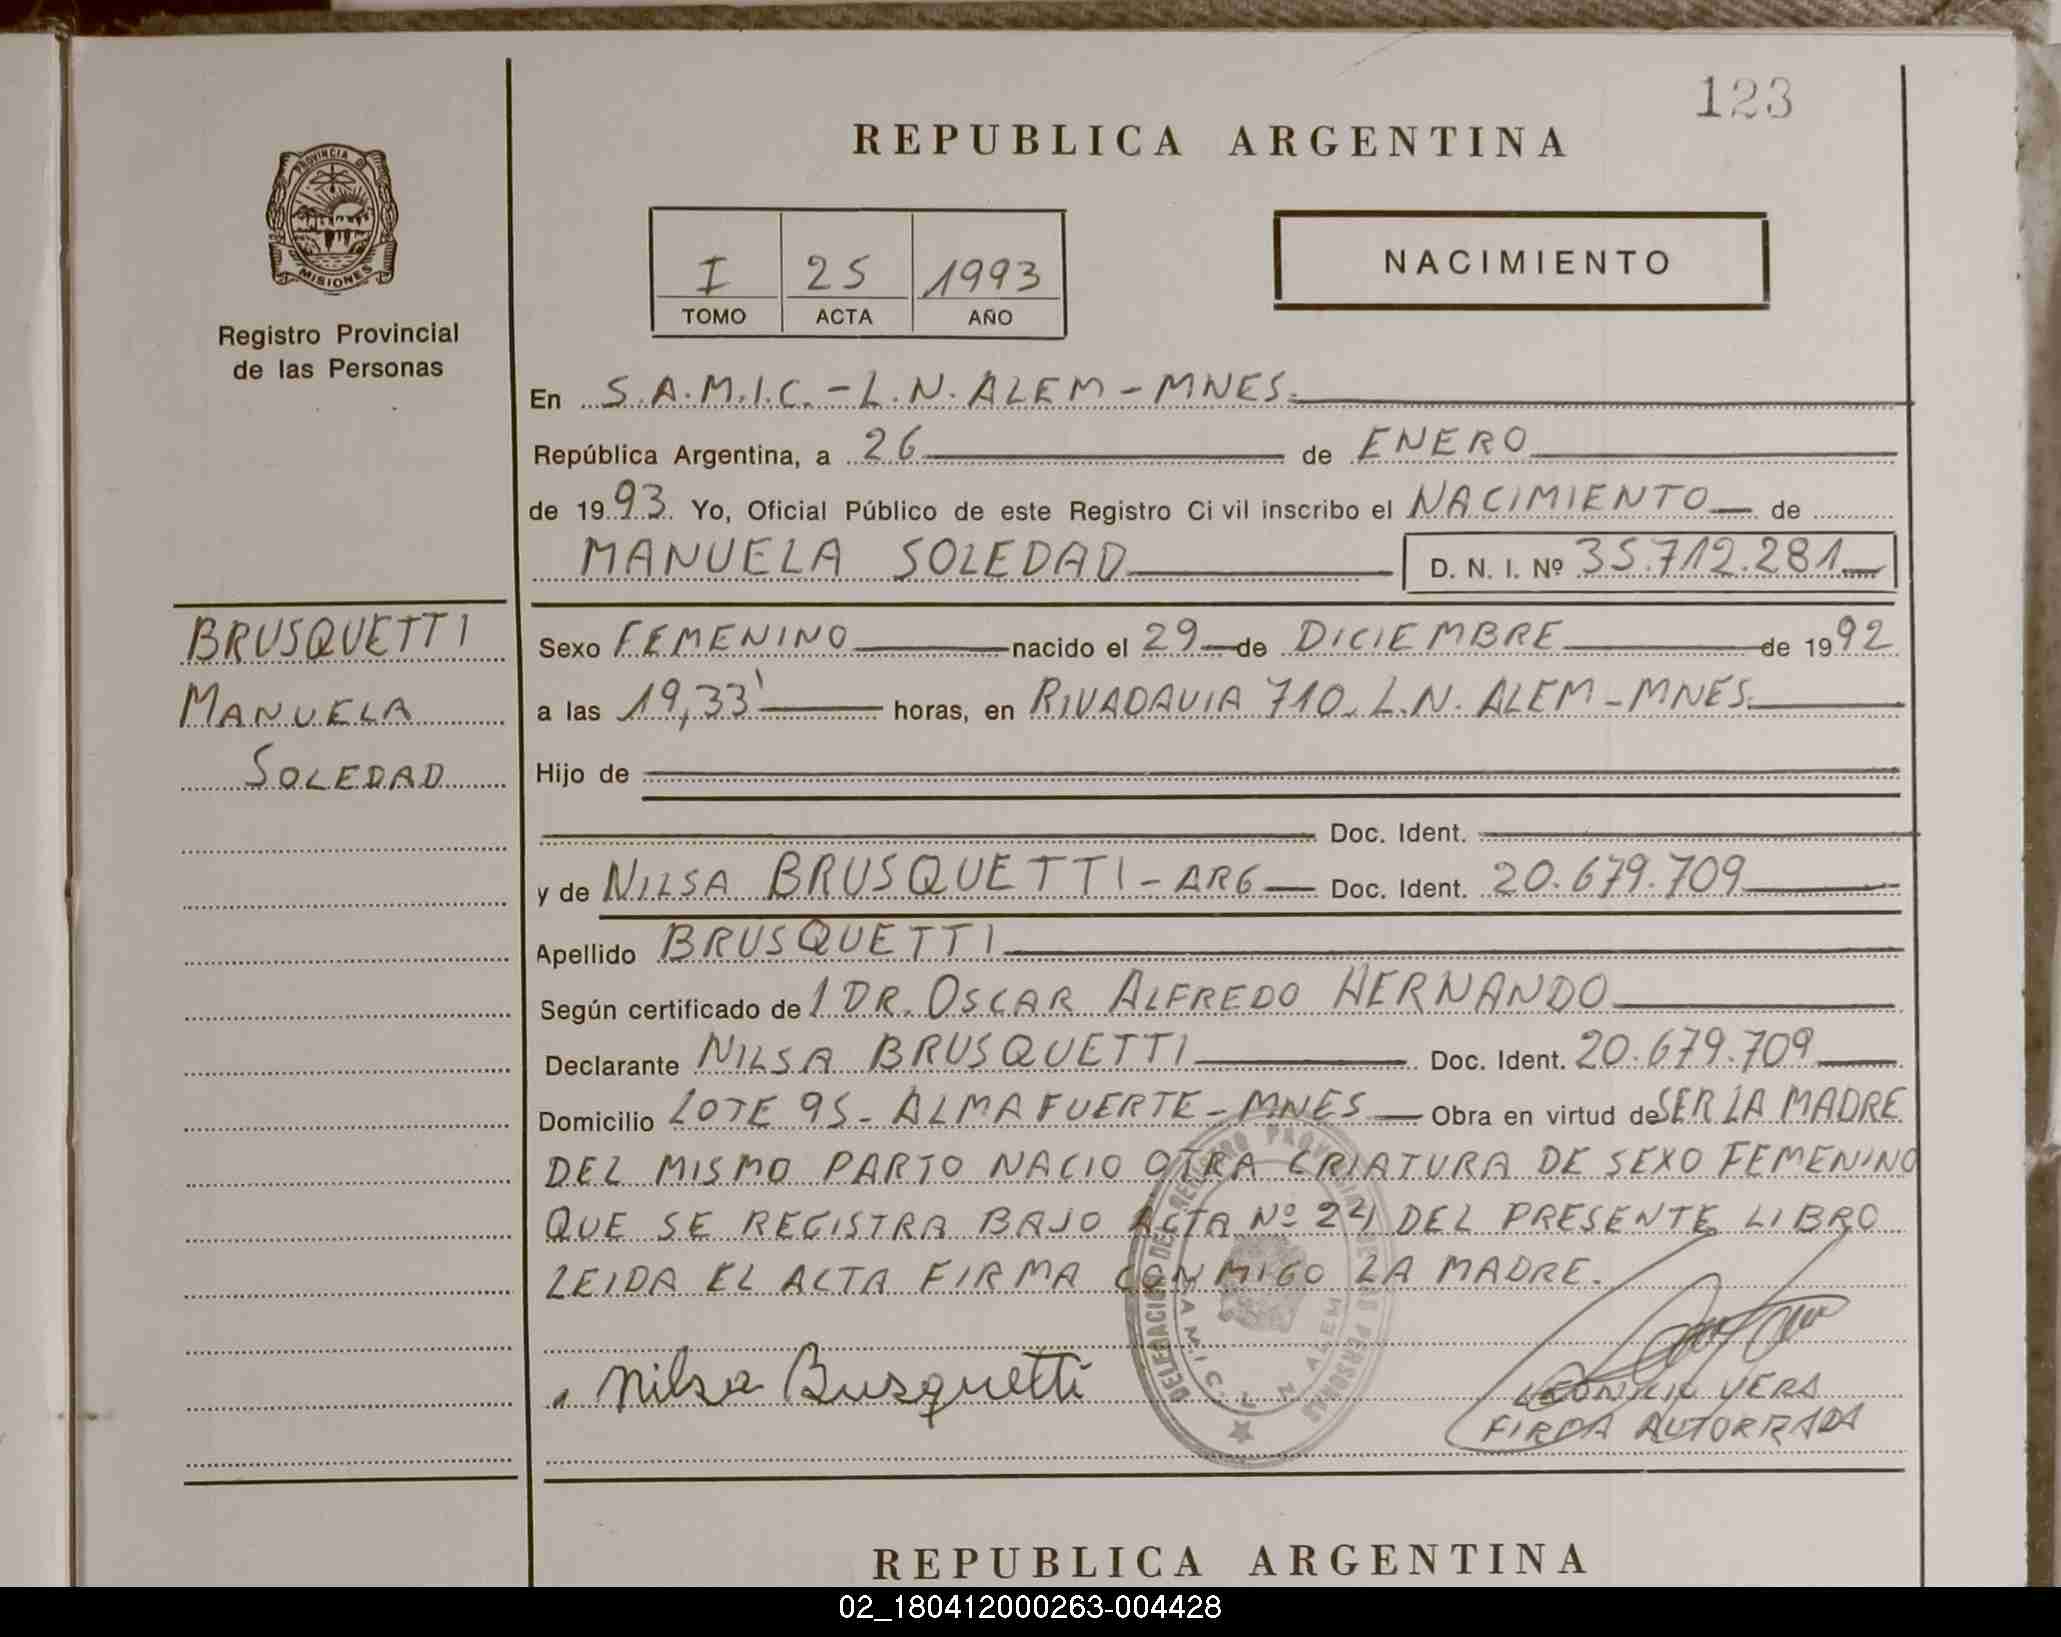 123
REPUBLICA ARGENTINA
PROVINCIA DE
MISIONES
Registro Provincial
de las Personas
I 25 1993
TOMO ACTA AÑO
NACIMIENTO
En S.A.M.I.C. - L.N. ALEM - MNES.
República Argentina, a 26 de ENERO
de 1993. Yo, Oficial Público de este Registro Civil inscribo el NACIMIENTO de
MANUELA SOLEDAD D. N. I. Nº 35.712.281
BRUSQUETTI
MANUELA
SOLEDAD
Sexo FEMENINO nacido el 29 de DICIEMBRE de 1992
a las 19,33' horas, en RIVADAVIA 710. L.N. ALEM - MNES.
Hijo de
Doc. Ident.
y de NILSA BRUSQUETTI - ARG Doc. Ident. 20.679.709
Apellido BRUSQUETTI
Según certificado de 1 DR. OSCAR ALFREDO HERNANDO
Declarante NILSA BRUSQUETTI Doc. Ident. 20.679.709
Domicilio LOTE 95 - ALMAFUERTE - MNES Obra en virtud de SER LA MADRE
DEL MISMO PARTO NACIO OTRA CRIATURA DE SEXO FEMENINO
QUE SE REGISTRA BAJO ACTA Nº 24 DEL PRESENTE LIBRO
LEIDA EL ACTA FIRMA CONMIGO LA MADRE.
DELEGACION DEL REGISTRO PROVINCIAL DE LAS PERSONAS
SAMIC. L N ALEM
Nilsa Busquetti
VERA
REPUBLICA ARGENTINA
02_180412000263-004428